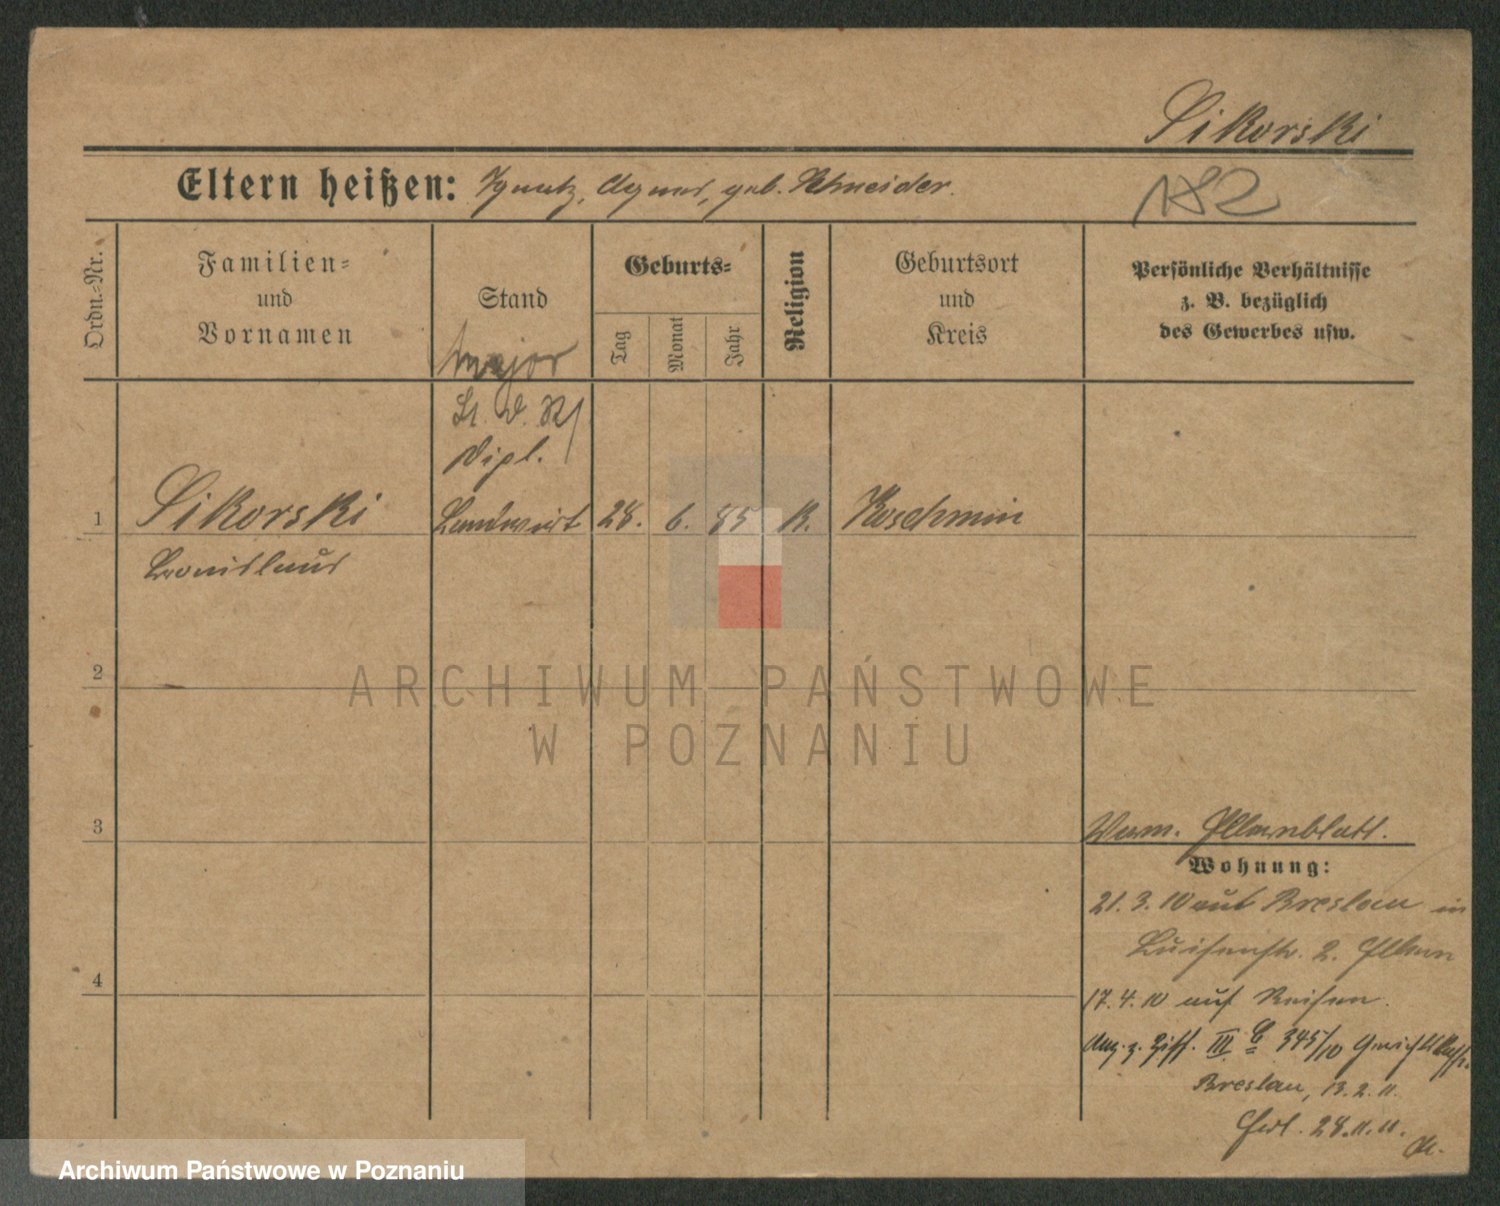 Sikorski
Eltern heißen: Ignatz, Agnes, geb. Schneider.
182
Ordn.-Nr.
Familien-
und
Vornamen
Stand
Geburts-
Tag
Monat
Jahr
Religion
Geburtsort
und
Kreis
Persönliche Verhältnisse
z. B. bezüglich
des Gewerbes usw.
major
Lt. d. R
Dipl.
1 Sikorski Landwirt 28. 6. 85 K. Koschmin
Bronislaus
2
3
4
Elternblatt.
Wohnung:
21.3.10 aus Breslau in
Luisenstr. 2. Eltern
17.4.10 auf Reisen.
Anz. z. Ziff. III C 345/10
Breslau, 13.2.11.
Erl. 28.11.11.
ARCHIWUM PAŃSTWOWE
W POZNANIU
Archiwum Państwowe w Poznaniu